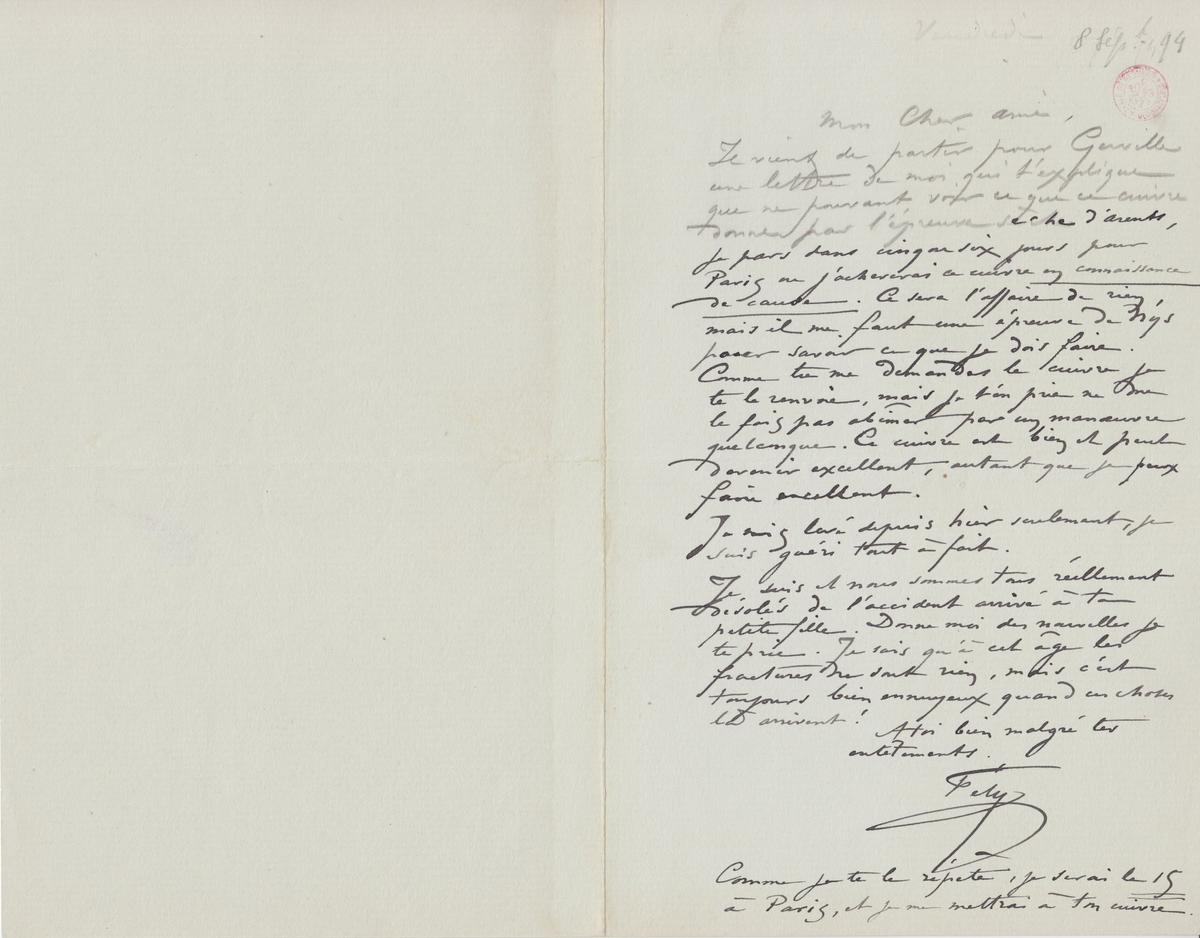 Vendredi 8 Sept. 94
Mon Cher ami,
Je viens de partir pour Gerville
une lettre de moi qui t'explique
que ne pouvant voir ce que ce cuivre
donner par l'épreuve sèche d'
je pars dans cinq ou six jours pour
Paris ou j'acheverai ce cuivre en connaissance
de cause. Ce sera l'affaire de rien,
mais il me faut une épreuve de Nys
pour savoir ce que je dois faire.
Comme tu me demandes le cuivre je
te le renvoie, mais je t'en prie ne me
le fais pas abîmer par un manœuvre
quelconque. Ce cuivre est bien et peut
devenir excellent, autant que je peux
faire excellent.
Je suis levé depuis hier seulement, je
suis guéri tout à fait.
Je suis et nous sommes tous réellement
désolés de l'accident arrivé à ta
petite fille. Donne moi des nouvelles je
te prie. Je sais qu'à cet âge les
fractures ne sont rien, mais c'est
toujours bien ennuyeux quand ces choses
là arrivent!
A toi bien malgré tes
entetements.
Fély
Comme je te le répète, je serai le 15
à Paris, et je me mettrai à ton cuivre.